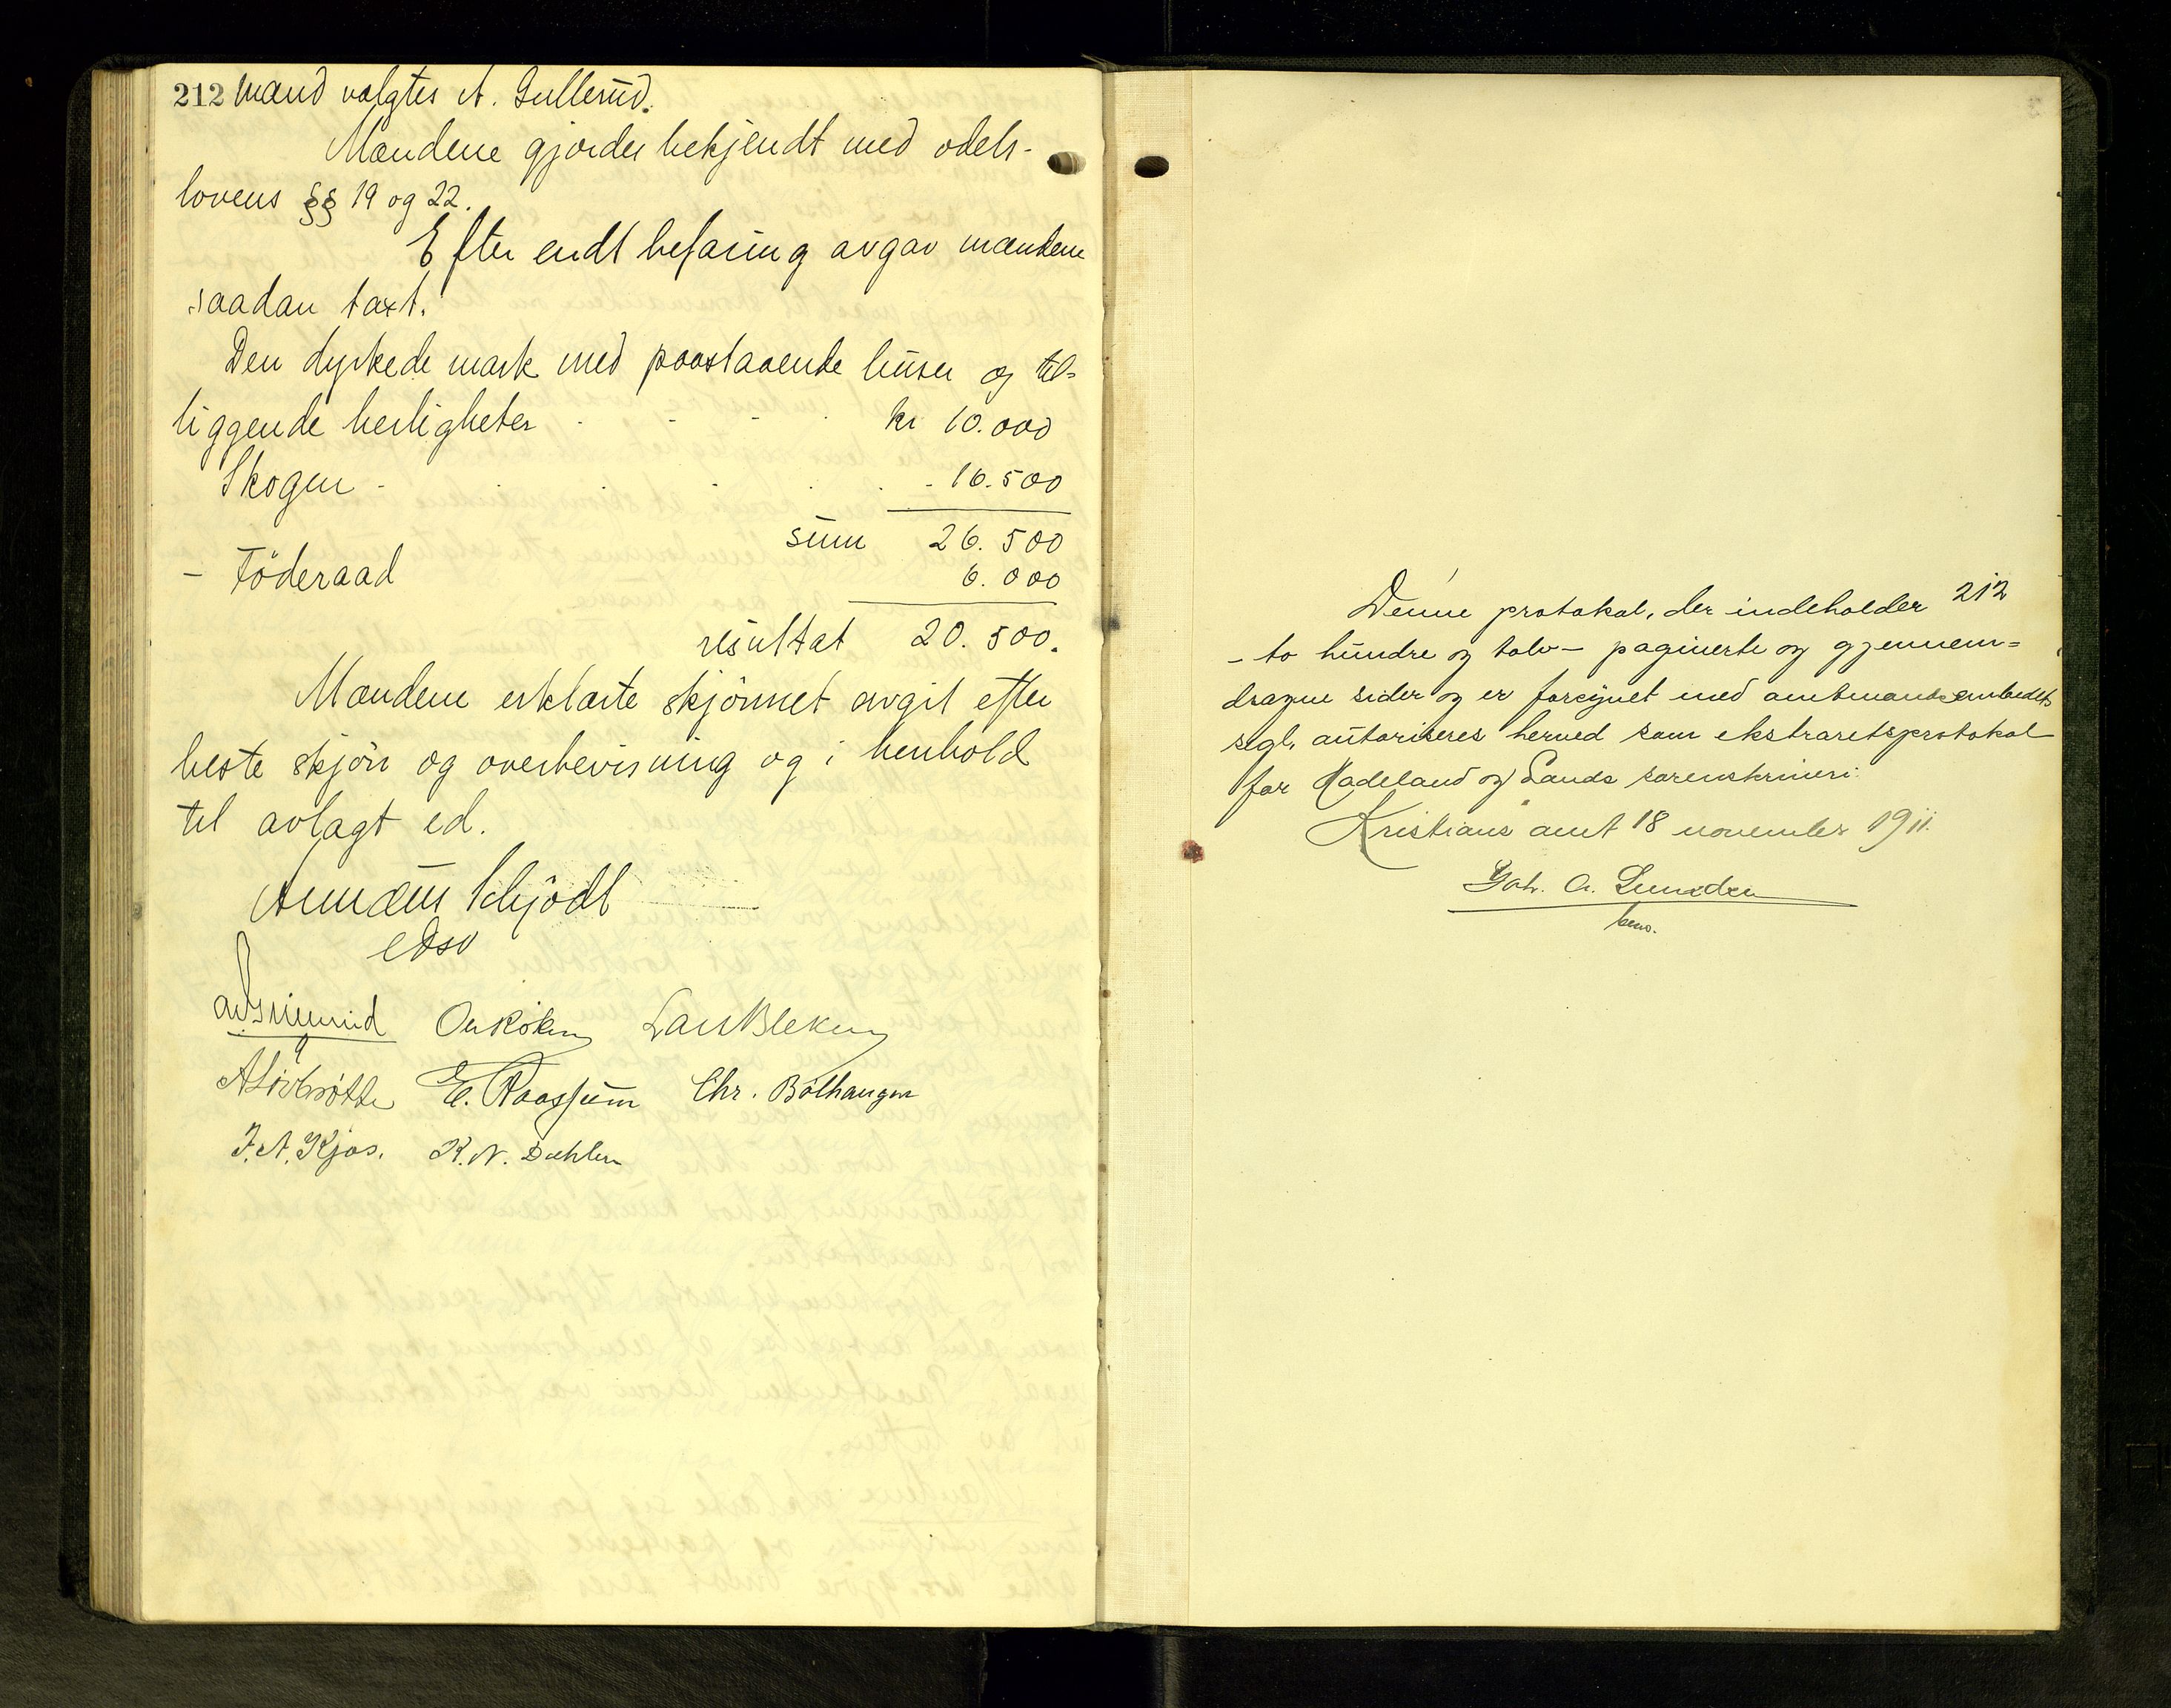 212 mand valgtes A. Gullerud.
Mændene gjordes bekjendt med odels-
lovens §§ 19 og 22.
Efter endt befaring avgav mændene
saadan taxt:
Den dyrkede mark med paastaaende huser og til-
liggende herligheter - - - kr 10.000
Skogen - - - - 16.500
sum 26.500
- Föderaad 6.000
resultat 20.500.
Mændene erklærte skjönnet avgit efter
beste skjön og overbevisning og i henhold
til avlagt ed.
Annæus Schjödt
edsv
Ole Röken Lars Bleken
A Lövbrötte E. Raassum Chr. Bölhaugen
J. A. Kjos. K. N. Dæhlen
Denne protokol, der indeholder 212
- to hundre og tolv - paginerte og gjennem-
dragne sider og er forsynet med amtmandsembedets
segl, autoriseres herved som ekstraretsprotokol
for Hadeland og Lands sorenskriveri.
Kristians amt 18 november 1911.
Joh. A.